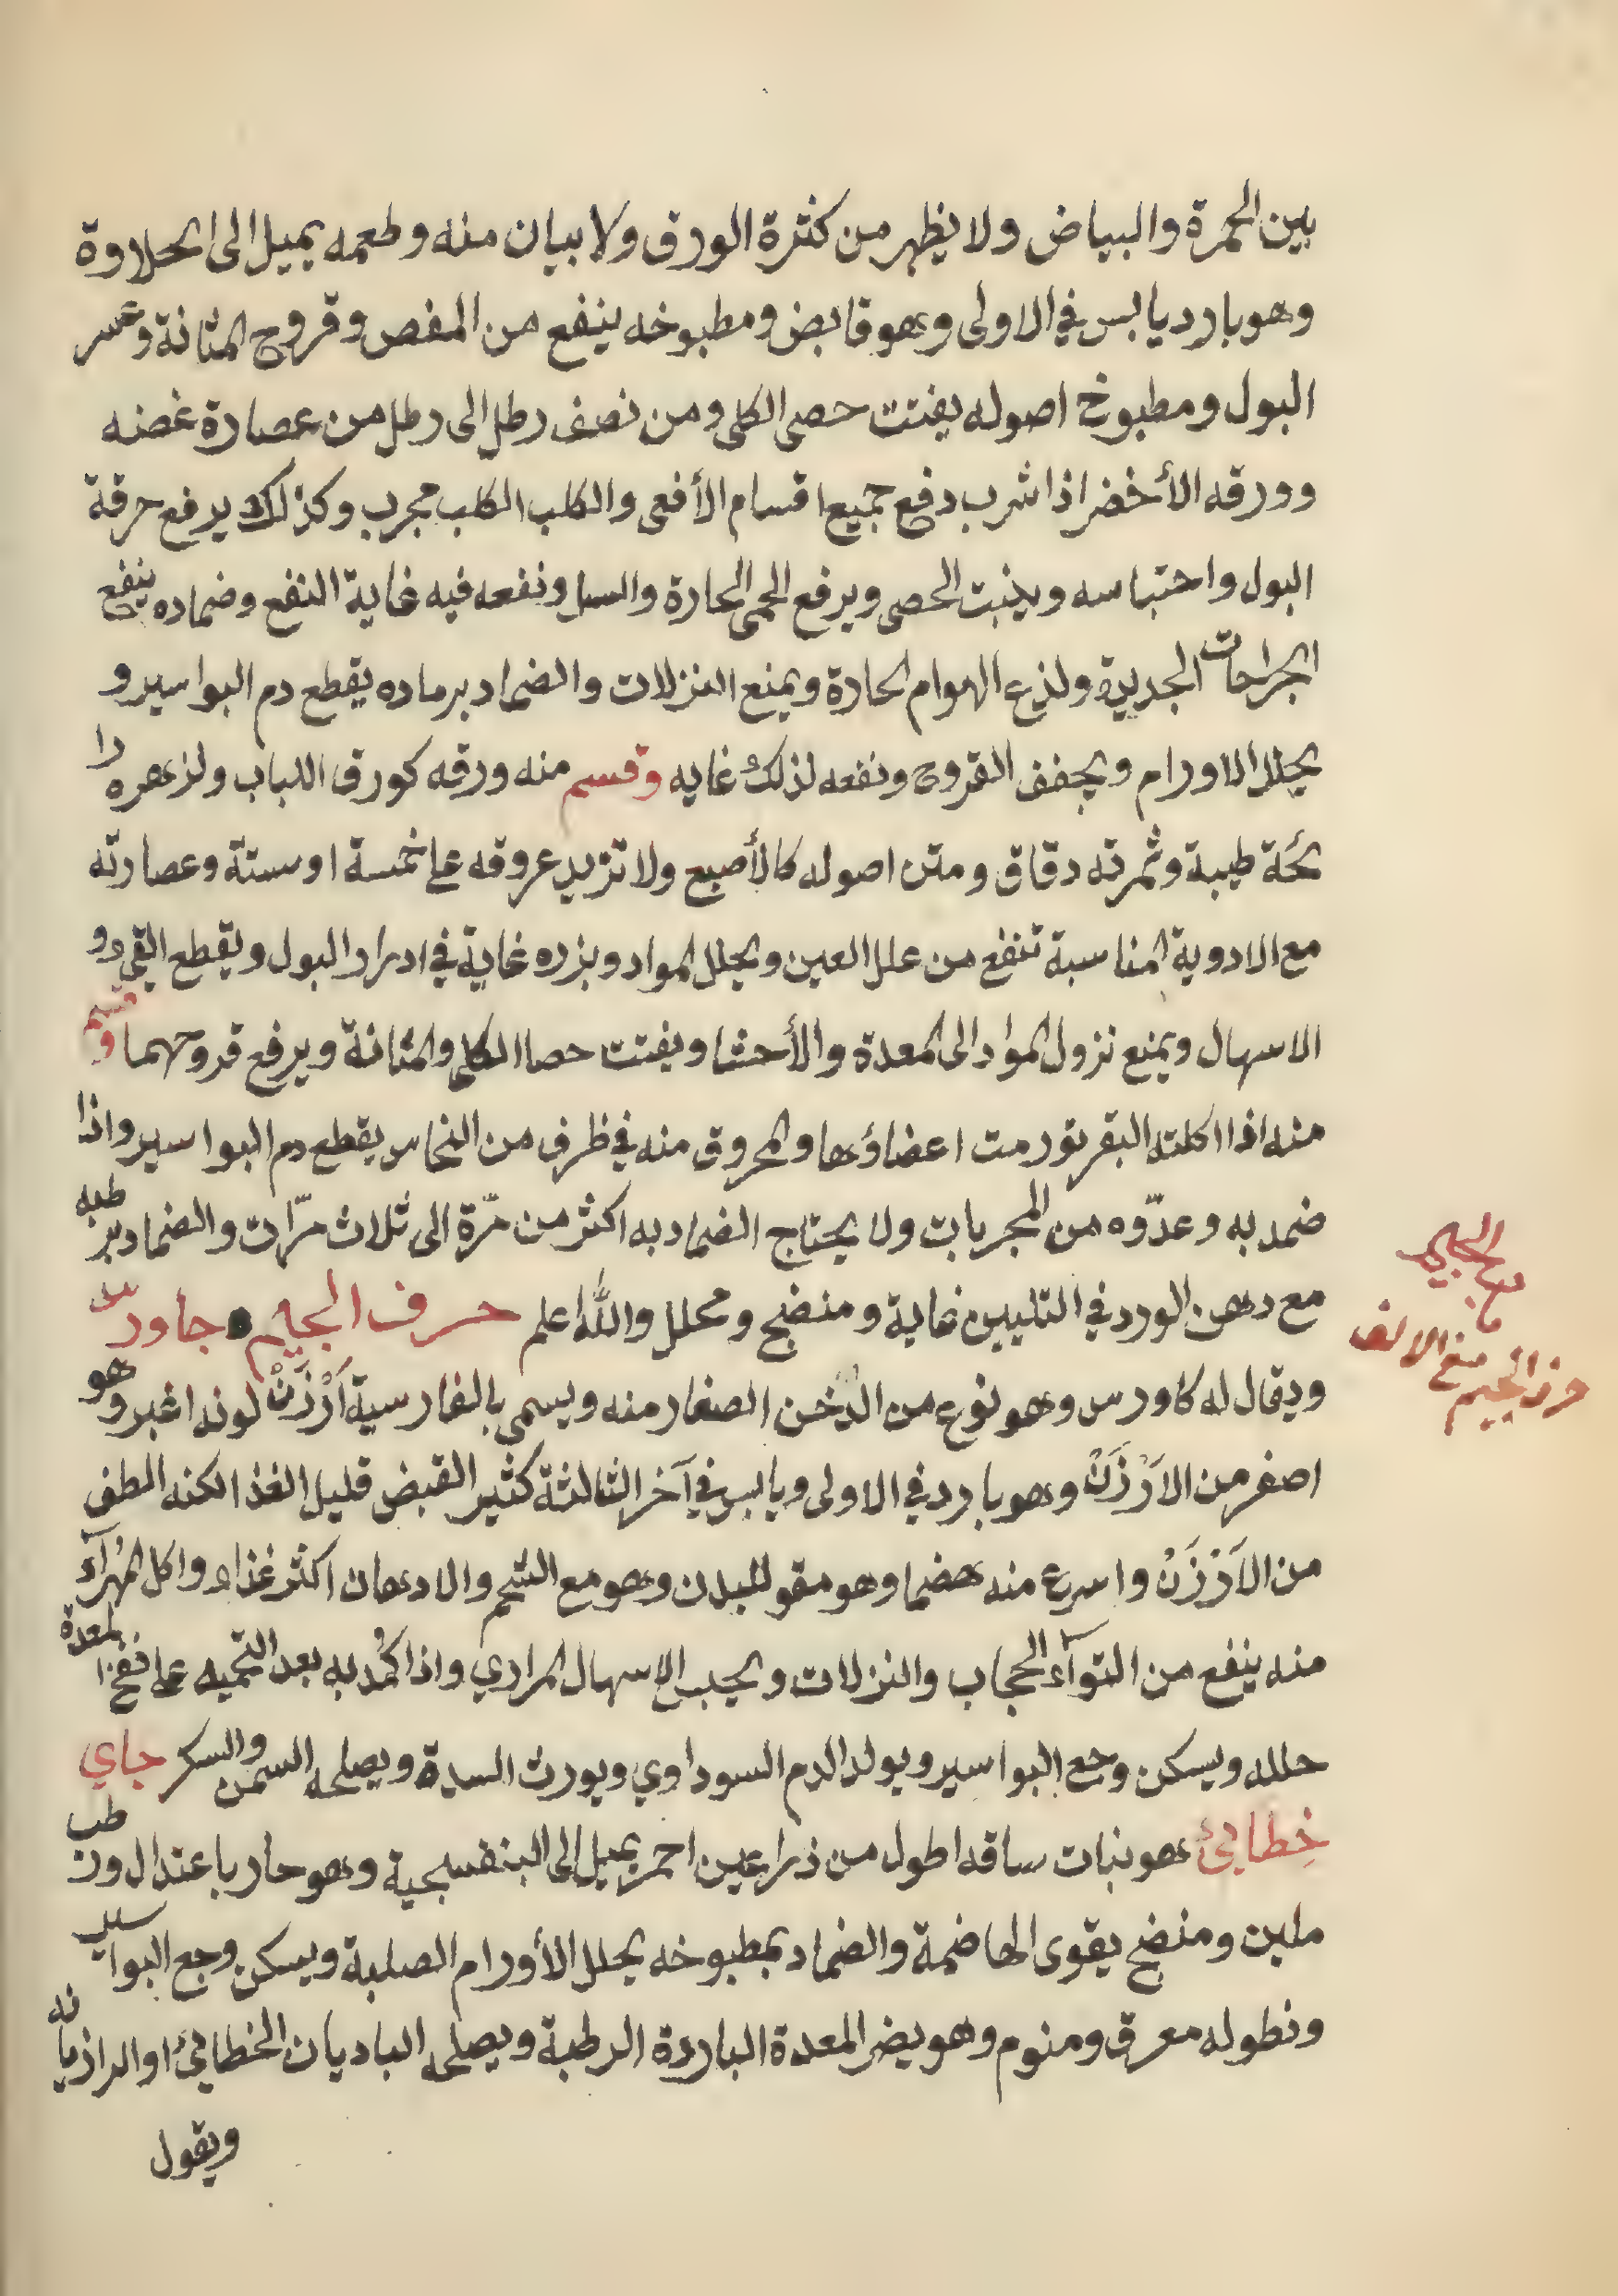 بين الحمرة والبياض ولا يظهر من كثرة الورق ولا بيان منه وطعمه يميل الى الحلاوة
وهو بارد يابس في الاولى وهو قابض ومطبوخه ينفع من المغص وقروح المثانة وعسر
البول ومطبوخ اصوله يفتت حصى الكلى ومن نصف رطل الى رطل من عصارة غضنه
وورقه الأخضر اذا شرب دفع جميع اقسام الأفعى والكلب الكلب مجرب وكذلك يرفع حرقة
البول واحتباسه ويفتت الحصى ويرفع الحمى الحارة والسل ونفعه فيه غاية النفع وضماده ينفع
الجراحات الجديدة ولذع الهوام الحارة ويمنع النزلات والضماد برماده يقطع دم البواسير و
يحلل الاورام ويجفف القروح ونفعه لذلك غايه وقسم منه ورقه كورق اللباب ولزهره را
ئحة طيبة وثمرته دقاق ومتن اصوله كالأصبع ولا تزيد عروقه على خمسة او ستة وعصارته
مع الادوية المناسبة تنفع من علل العين ويحلل المواد وبزره غاية في ادرار البول ويقطع القيء و
الاسهال ويمنع نزول المواد الى المعدة والأحشا ويفتت حصا الكلى والمثانة ويرفع قروحهما وقسم
منه اذا اكلته البقر تورمت اعضاؤها والمحروق منه في ظرف من النحاس يقطع دم البواسير واذا
ضمد به وعدّوه من المجربات ولا يحتاج الضماد به اكثر من مّرة الى ثلاث مرّات والضماد برطبه
مع دهن الورد في التليين غاية ومنضج ومحلل والله اعلم حرف الجيم جاورس
ويقال له كاورس وهو نوع من الدُخن الصغار منه ويسمى بالفارسية اَرْزَنْ لونه اغبر وهو
اصفر من الاَرْزَنْ وهو بارد في الاولى ويابس في آخر الثالثة كثير القبض قليل الغذا لكنه الطف
من الاَرْزَنْ واسرع منه هضما وهو مقو للبدن وهو مع الشحم والادهان اكثر غذاء واكل المُهرآء
منه ينفع من التوآء الحجاب والنزلات ويحبس الاسهال المراري واذا كُمد به بعد التحميه على نفخ المعدة
حلله ويسكن وجع البواسير ويولد الدم السوداوي ويورث السدة ويصلحه السمن والسكر جاي
خِطائئ هو نبات ساقه اطول من ذراعين احمر يميل الى البنفسجية وهو حار باعتدال ورطب
ملين ومنضج يقوى الهاضمة والضماد بمطبوخه يحلل الأورام الصلبة ويسكن وجع البواسير
ونطوله معرق ومنوم وهو يضر المعدة الباردة الرطبة ويصلحه الباديان الخطائئ او الرازيانه
ويقول
حرف الجيم مع الالف